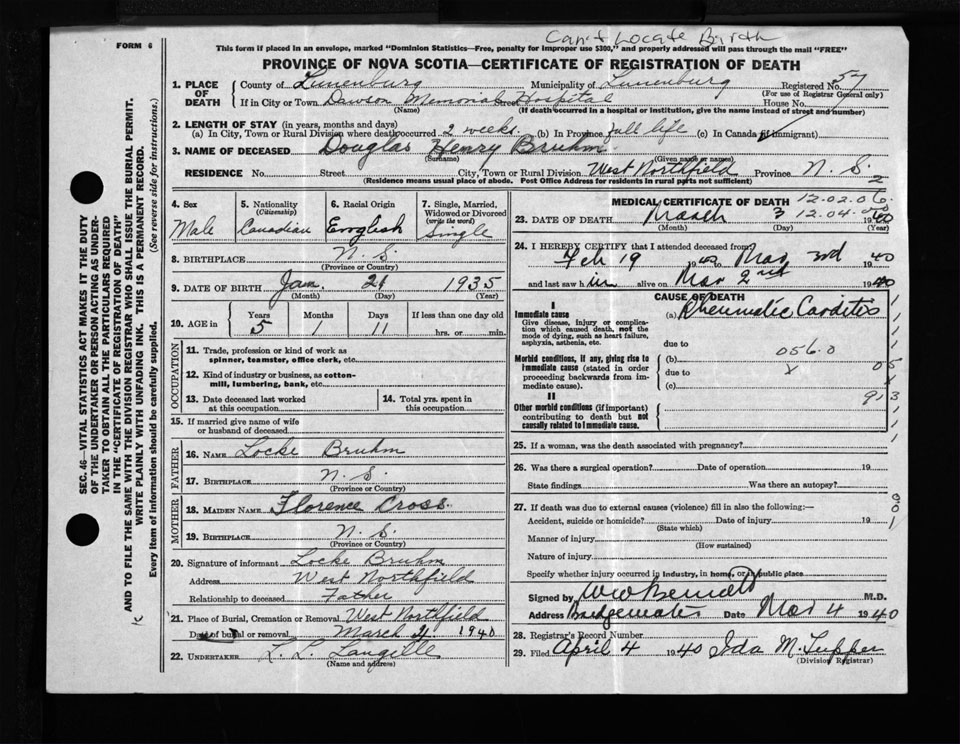 Can't Locate Birth
FORM 6
This form if placed in an envelope, marked "Dominion Statistics—Free, penalty for improper use $300," and properly addressed will pass through the mail "FREE"
PROVINCE OF NOVA SCOTIA—CERTIFICATE OF REGISTRATION OF DEATH
1. PLACE OF DEATH County of Lunenburg Municipality of Lunenburg Registered No. 57
(For use of Registrar General only)
If in City or Town Dawson Memorial Street Hospital House No.
(Name) (If death occurred in a hospital or institution, give the name instead of street and number)
2. LENGTH OF STAY (in years, months and days)
(a) In City, Town or Rural Division where death occurred 2 weeks (b) In Province full life (c) In Canada (if immigrant)
3. NAME OF DECEASED Douglas Henry Bruhm
(Surname) (Given name or names)
RESIDENCE No. Street City, Town or Rural Division West Northfield Province N. S.
(Residence means usual place of abode. Post Office Address for residents in rural parts not sufficient)
4. Sex Male
5. Nationality (Citizenship) Canadian
6. Racial Origin English
7. Single, Married, Widowed or Divorced (write the word) Single
8. BIRTHPLACE N. S.
(Province or Country)
9. DATE OF BIRTH Jan. 21 1935
(Month) (Day) (Year)
10. AGE in Years Months Days If less than one day old
5 1 11 hrs. or min.
OCCUPATION
11. Trade, profession or kind of work as spinner, teamster, office clerk, etc.
12. Kind of industry or business, as cotton-mill, lumbering, bank, etc.
13. Date deceased last worked at this occupation
14. Total yrs. spent in this occupation
15. If married give name of wife or husband of deceased
FATHER
16. NAME Locke Bruhm
17. BIRTHPLACE N. S.
(Province or Country)
MOTHER
18. MAIDEN NAME Florence Cross
19. BIRTHPLACE N. S.
(Province or Country)
20. Signature of informant Locke Bruhm
Address West Northfield
Relationship to deceased Father
21. Place of Burial, Cremation or Removal West Northfield
Date of burial or removal March 4 1940
22. UNDERTAKER L. L. Langille
(Name and address)
MEDICAL CERTIFICATE OF DEATH
12.02.06
2
23. DATE OF DEATH March 3 12.04. 1940
(Month) (Day) (Year)
24. I HEREBY CERTIFY that I attended deceased from
Feb 19 1940 to Mar 3rd 1940
and last saw him alive on Mar 2nd 1940
CAUSE OF DEATH
I
Immediate cause (a) Rheumatic Carditis
Give disease, injury or complication which caused death, not the mode of dying, such as heart failure, asphyxia, asthenia, etc.
due to
Morbid conditions, if any, giving rise to immediate cause (stated in order proceeding backwards from immediate cause).
(b) 056.0
due to
(c)
II
Other morbid conditions (if important) contributing to death but not causally related to immediate cause.
25. If a woman, was the death associated with pregnancy?
26. Was there a surgical operation? Date of operation 19
State findings Was there an autopsy?
27. If death was due to external causes (violence) fill in also the following:—
Accident, suicide or homicide? Date of injury 19
(State which)
Manner of injury
(How sustained)
Nature of injury
Specify whether injury occurred in industry, in home, or in public place
Signed by M.D.
Address Bridgewater Date Mar 4 1940
28. Registrar's Record Number
29. Filed April 4 1940 Ida M. Tupper
(Division Registrar)
SEC. 46—VITAL STATISTICS ACT MAKES IT THE DUTY
OF THE UNDERTAKER OR PERSON ACTING AS UNDER-
TAKER TO OBTAIN ALL THE PARTICULARS REQUIRED
IN THE "CERTIFICATE OF REGISTRATION OF DEATH"
AND TO FILE THE SAME WITH THE DIVISION REGISTRAR WHO SHALL ISSUE THE BURIAL PERMIT.
WRITE PLAINLY WITH UNFADING INK. THIS IS A PERMANENT RECORD.
Every item of information should be carefully supplied. (See reverse side for instructions.)